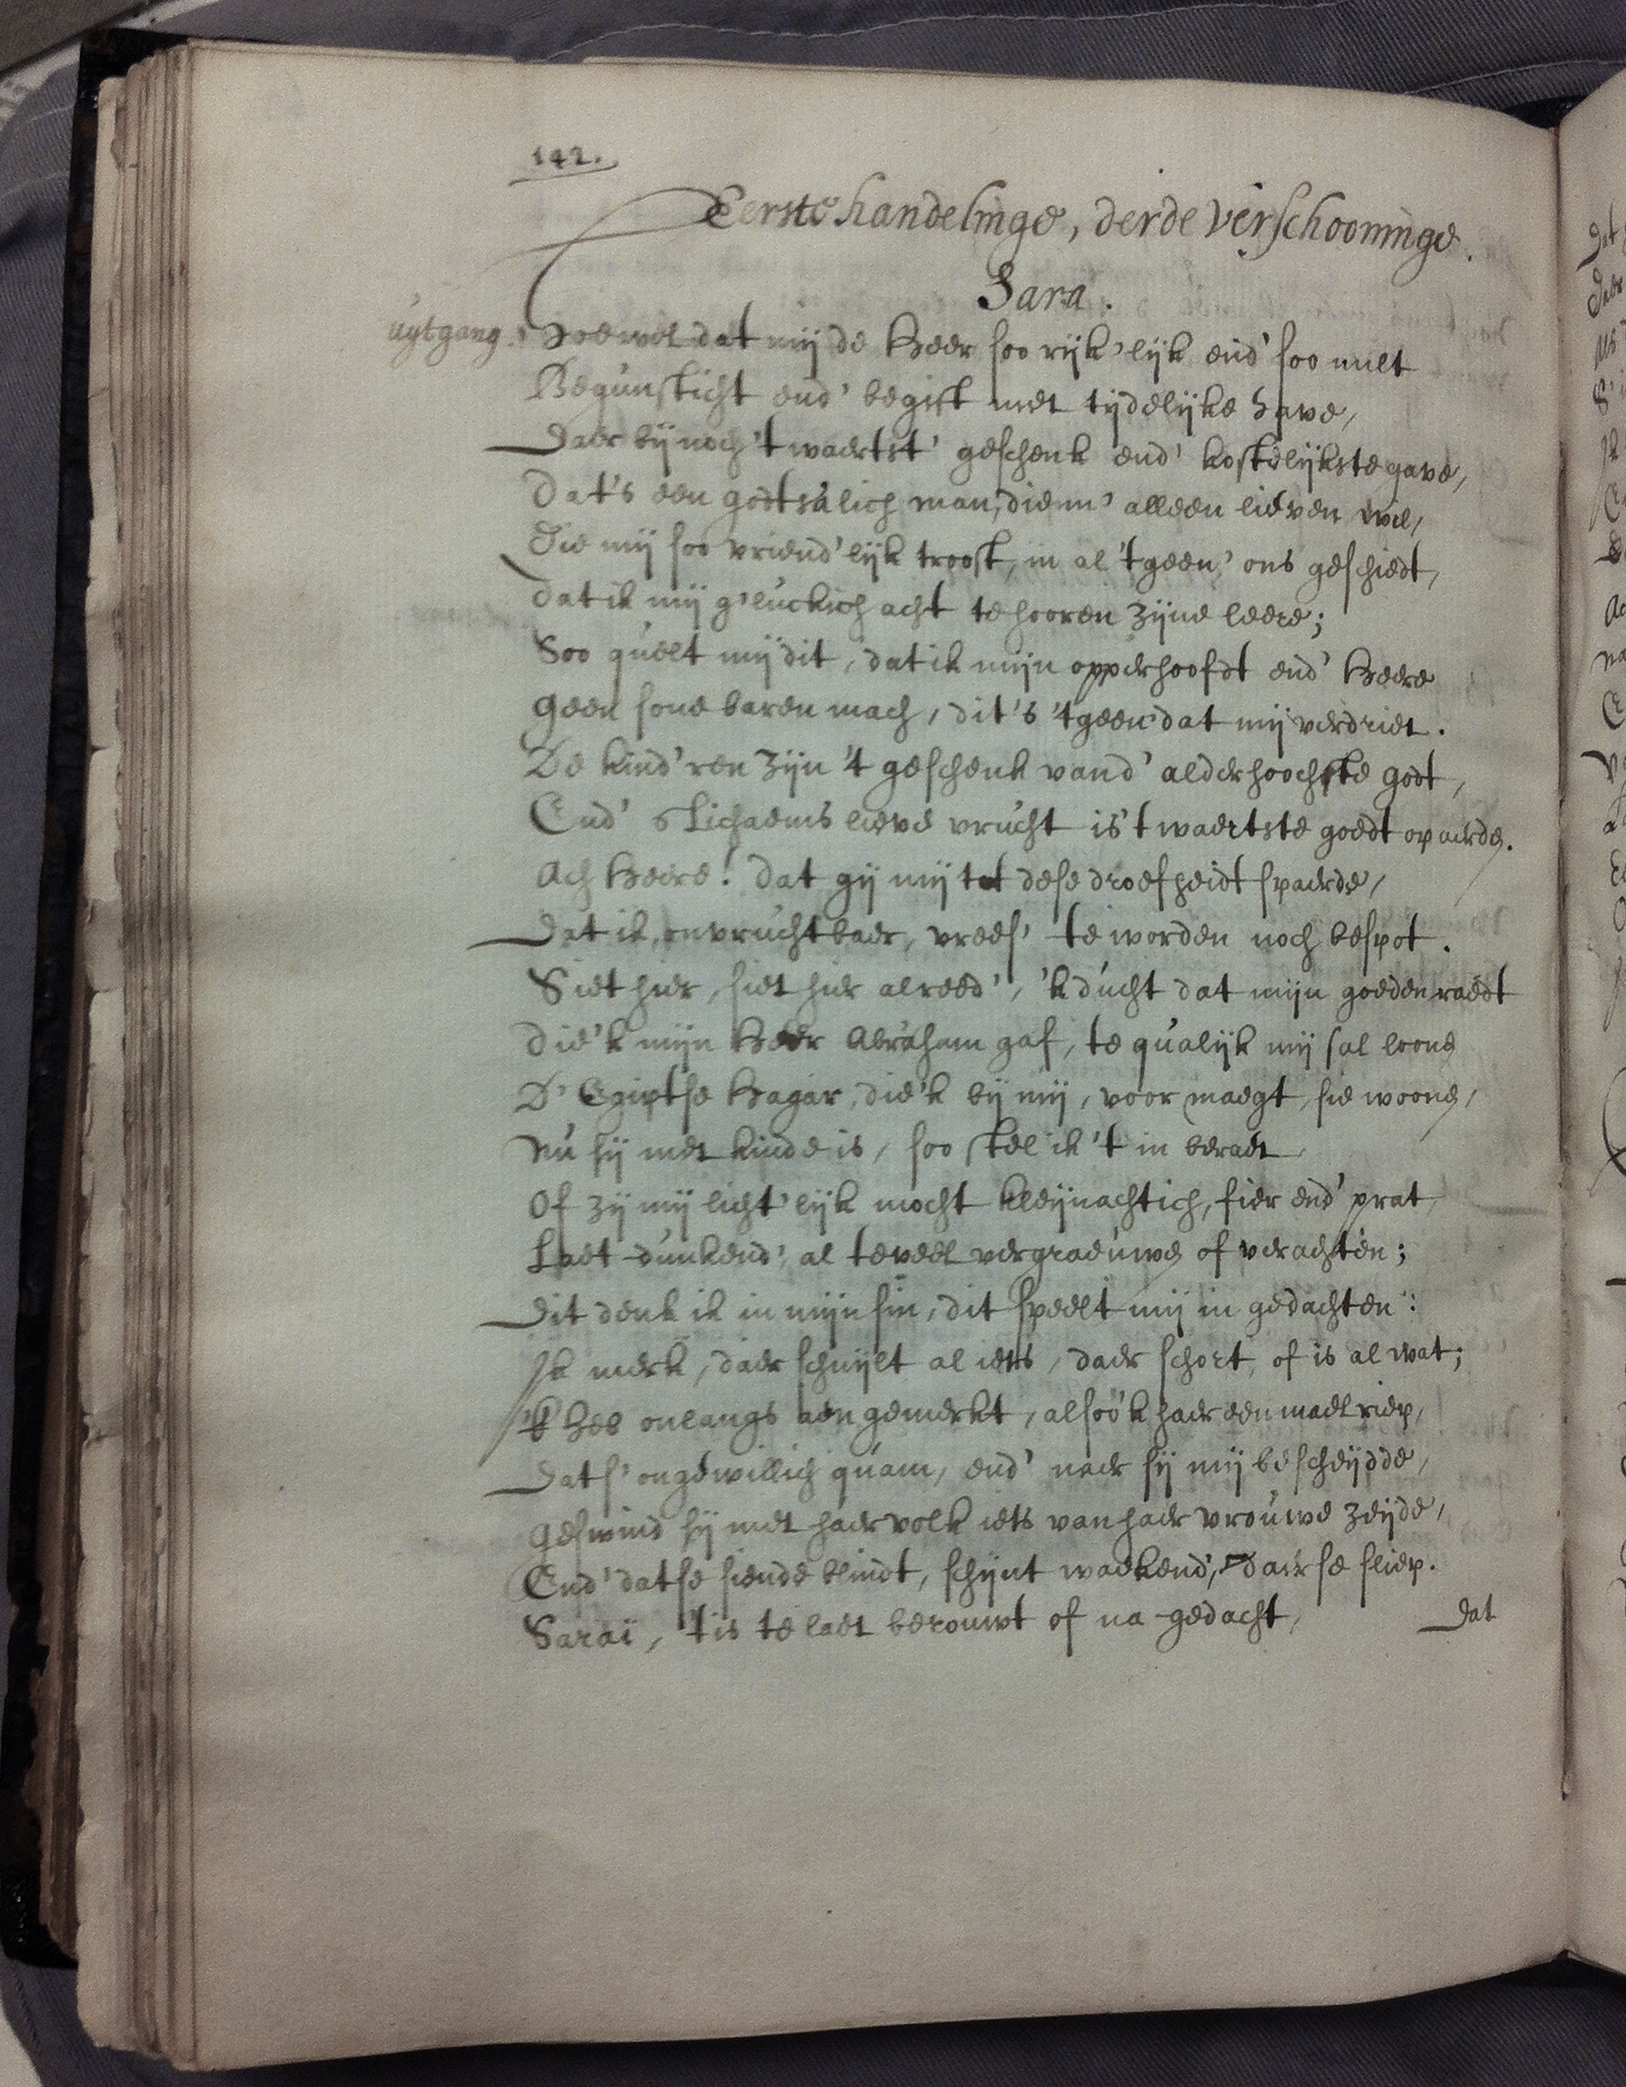 142.
Eerste handelinge, derde verschooninge.
Sara.
uytgang. Hoewel dat mij de Heer soo rijk'lijk end' soo milt
Begunsticht end' begift met tijdelijke have,
Daer bij noch 't waertst' geschenk end' kostelijkste gave,
Dat's een godtsalich man, diem' alleen lieven wil,
Die mij soo vriend'lijk troost, in al 't geen' ons geschiedt,
Dat ik mij g'luckich acht te hooren zijne leere;
Soo quelt mij dit, dat ik mijn opperhoofdt end' Heere
Geen sone baren mach, dit's 't geen dat mij verdriet.
De kind'ren zijn 't geschenk vand' alderhoochste Godt,
End' s Lichaems lieve vrucht is 't waertste goedt op aerde.
Ach Heere! dat gij mij tot dese droefheidt spaerde,
Dat ik, onvruchtbaer, vrees' te worden noch bespot.
Siet hier, siet hier alreed', 'k ducht dat mijn goeden raedt
Die'k mijn Heer Abraham gaf, te qualijk mij sal loone
D' Egiptse Hagar, die'k bij mij, voor maegt, sie woone,
Nu sij met kinde is, soo stel ik 't in beraet,
Of zij mij licht'lijk mocht kleijnachtich, fier end' prat
Laet-dunkend' al te veel vergraeuwe of verachten;
Dit denk ik in mijn sin, dit speelt mij in gedachten:
Ik merk, daer schuijlt al iets, daer schort, of is al wat;
'k heb onlangs aen gemerkt, alsoo'k haer eenmael riep,
Dats' ongewillich quam, end' naer sij mij bescheijdde,
Geswind sij met haer volk iets van haer vrouwe zeijde,
End' datse siende blindt, schijnt waekend', daer se sliep.
Sarai, 't is te laet berouwt of na-gedacht,
Dat